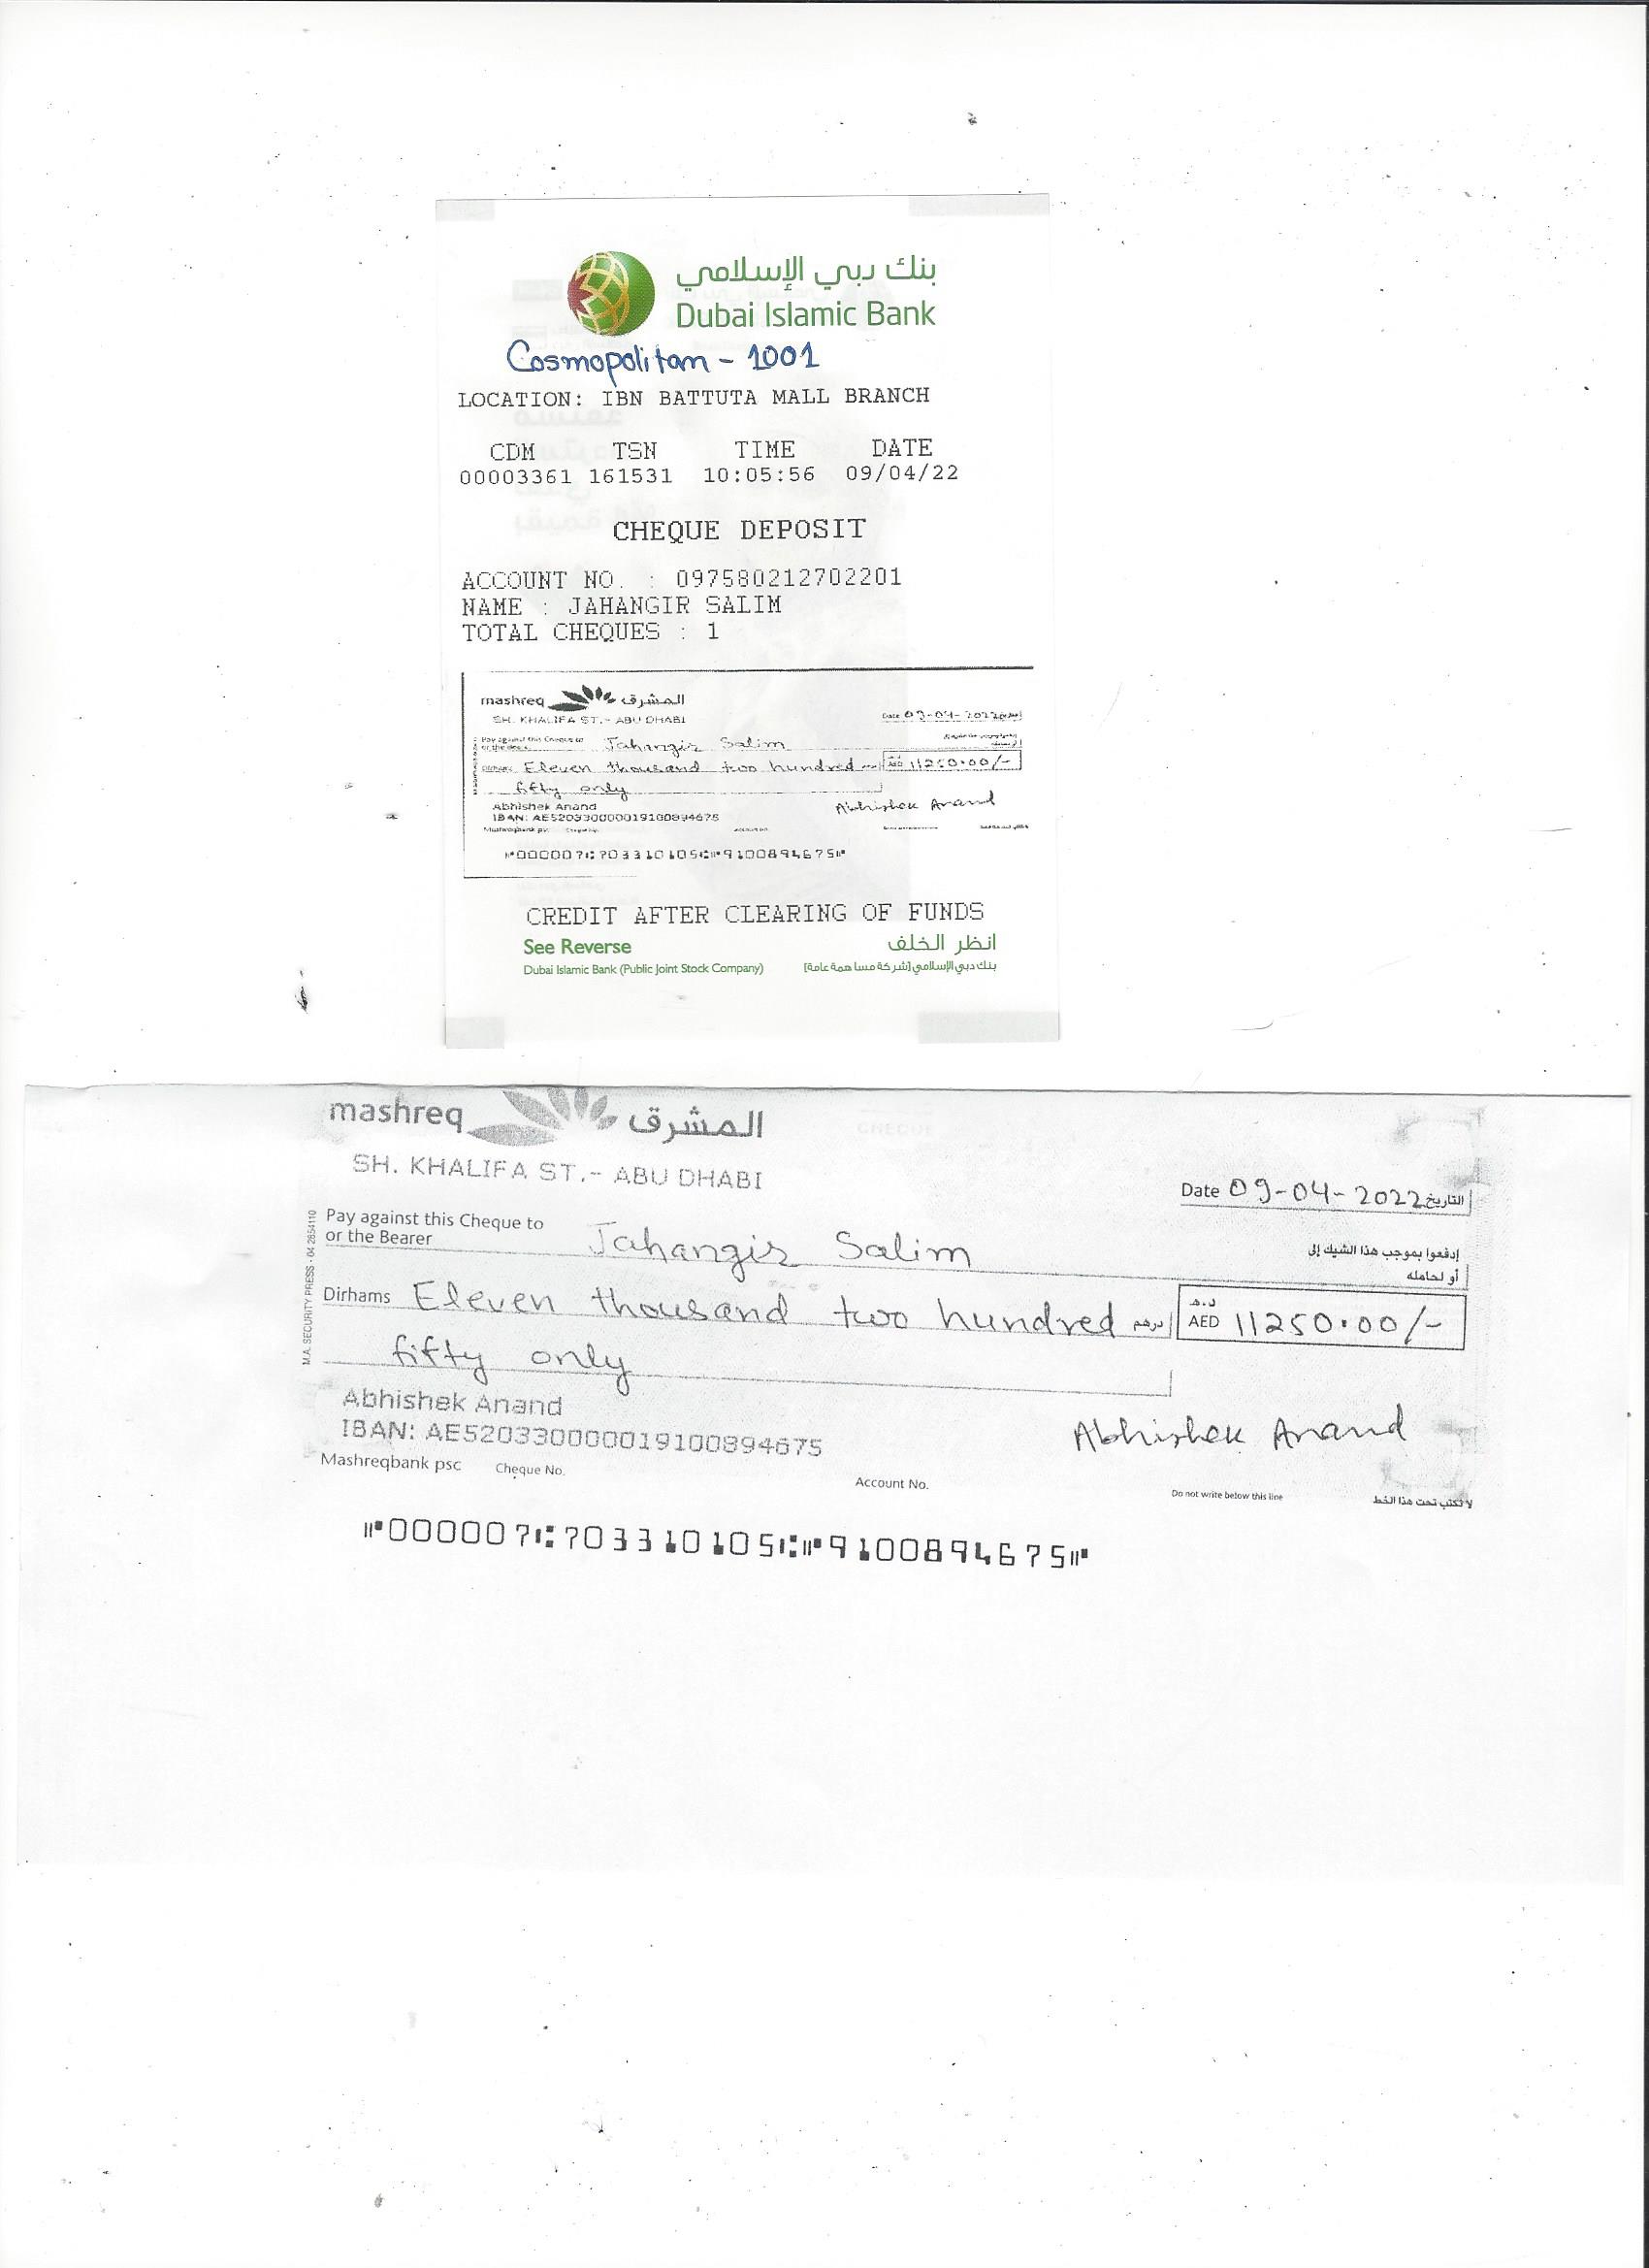 بنك دبي الإسلامي
Dubai Islamic Bank
Cosmopolitan - 1001
LOCATION: IBN BATTUTA MALL BRANCH
CDM TSN TIME DATE
00003361 161531 10:05:56 09/04/22
CHEQUE DEPOSIT
ACCOUNT NO. : 097580212702201
NAME : JAHANGIR SALIM
TOTAL CHEQUES : 1
mashreq المشرق
SH. KHALIFA ST.- ABU DHABI
Date 09-04-2022 التاريخ
Pay against this Cheque to
or the Bearer
Jahangir Salim
Dirhams Eleven thousand two hundred AED 11250.00/-
fifty only
Abhishek Anand
Abhishek Anand
IBAN: AE520330000019100894675
Mashreqbank psc Cheque No.
⑈000007⑆703310105⑆⑈9100894675⑈
CREDIT AFTER CLEARING OF FUNDS
See Reverse انظر الخلف
Dubai Islamic Bank (Public Joint Stock Company) بنك دبي الإسلامي (شركة مساهمة عامة)
mashreq المشرق
SH. KHALIFA ST.- ABU DHABI
Date 09-04-2022 التاريخ
Pay against this Cheque to إدفعوا بموجب هذا الشيك إلى
or the Bearer Jahangir Salim أو لحامله
Dirhams Eleven thousand two hundred درهم د.هـ AED 11250.00/-
fifty only
M.A. SECURITY PRESS - 04 2854110
Abhishek Anand
Abhishek Anand
IBAN: AE520330000019100894675
Mashreqbank psc Cheque No. Account No. Do not write below this line لا تكتب تحت هذا الخط
⑈000007⑆703310105⑆⑈9100894675⑈